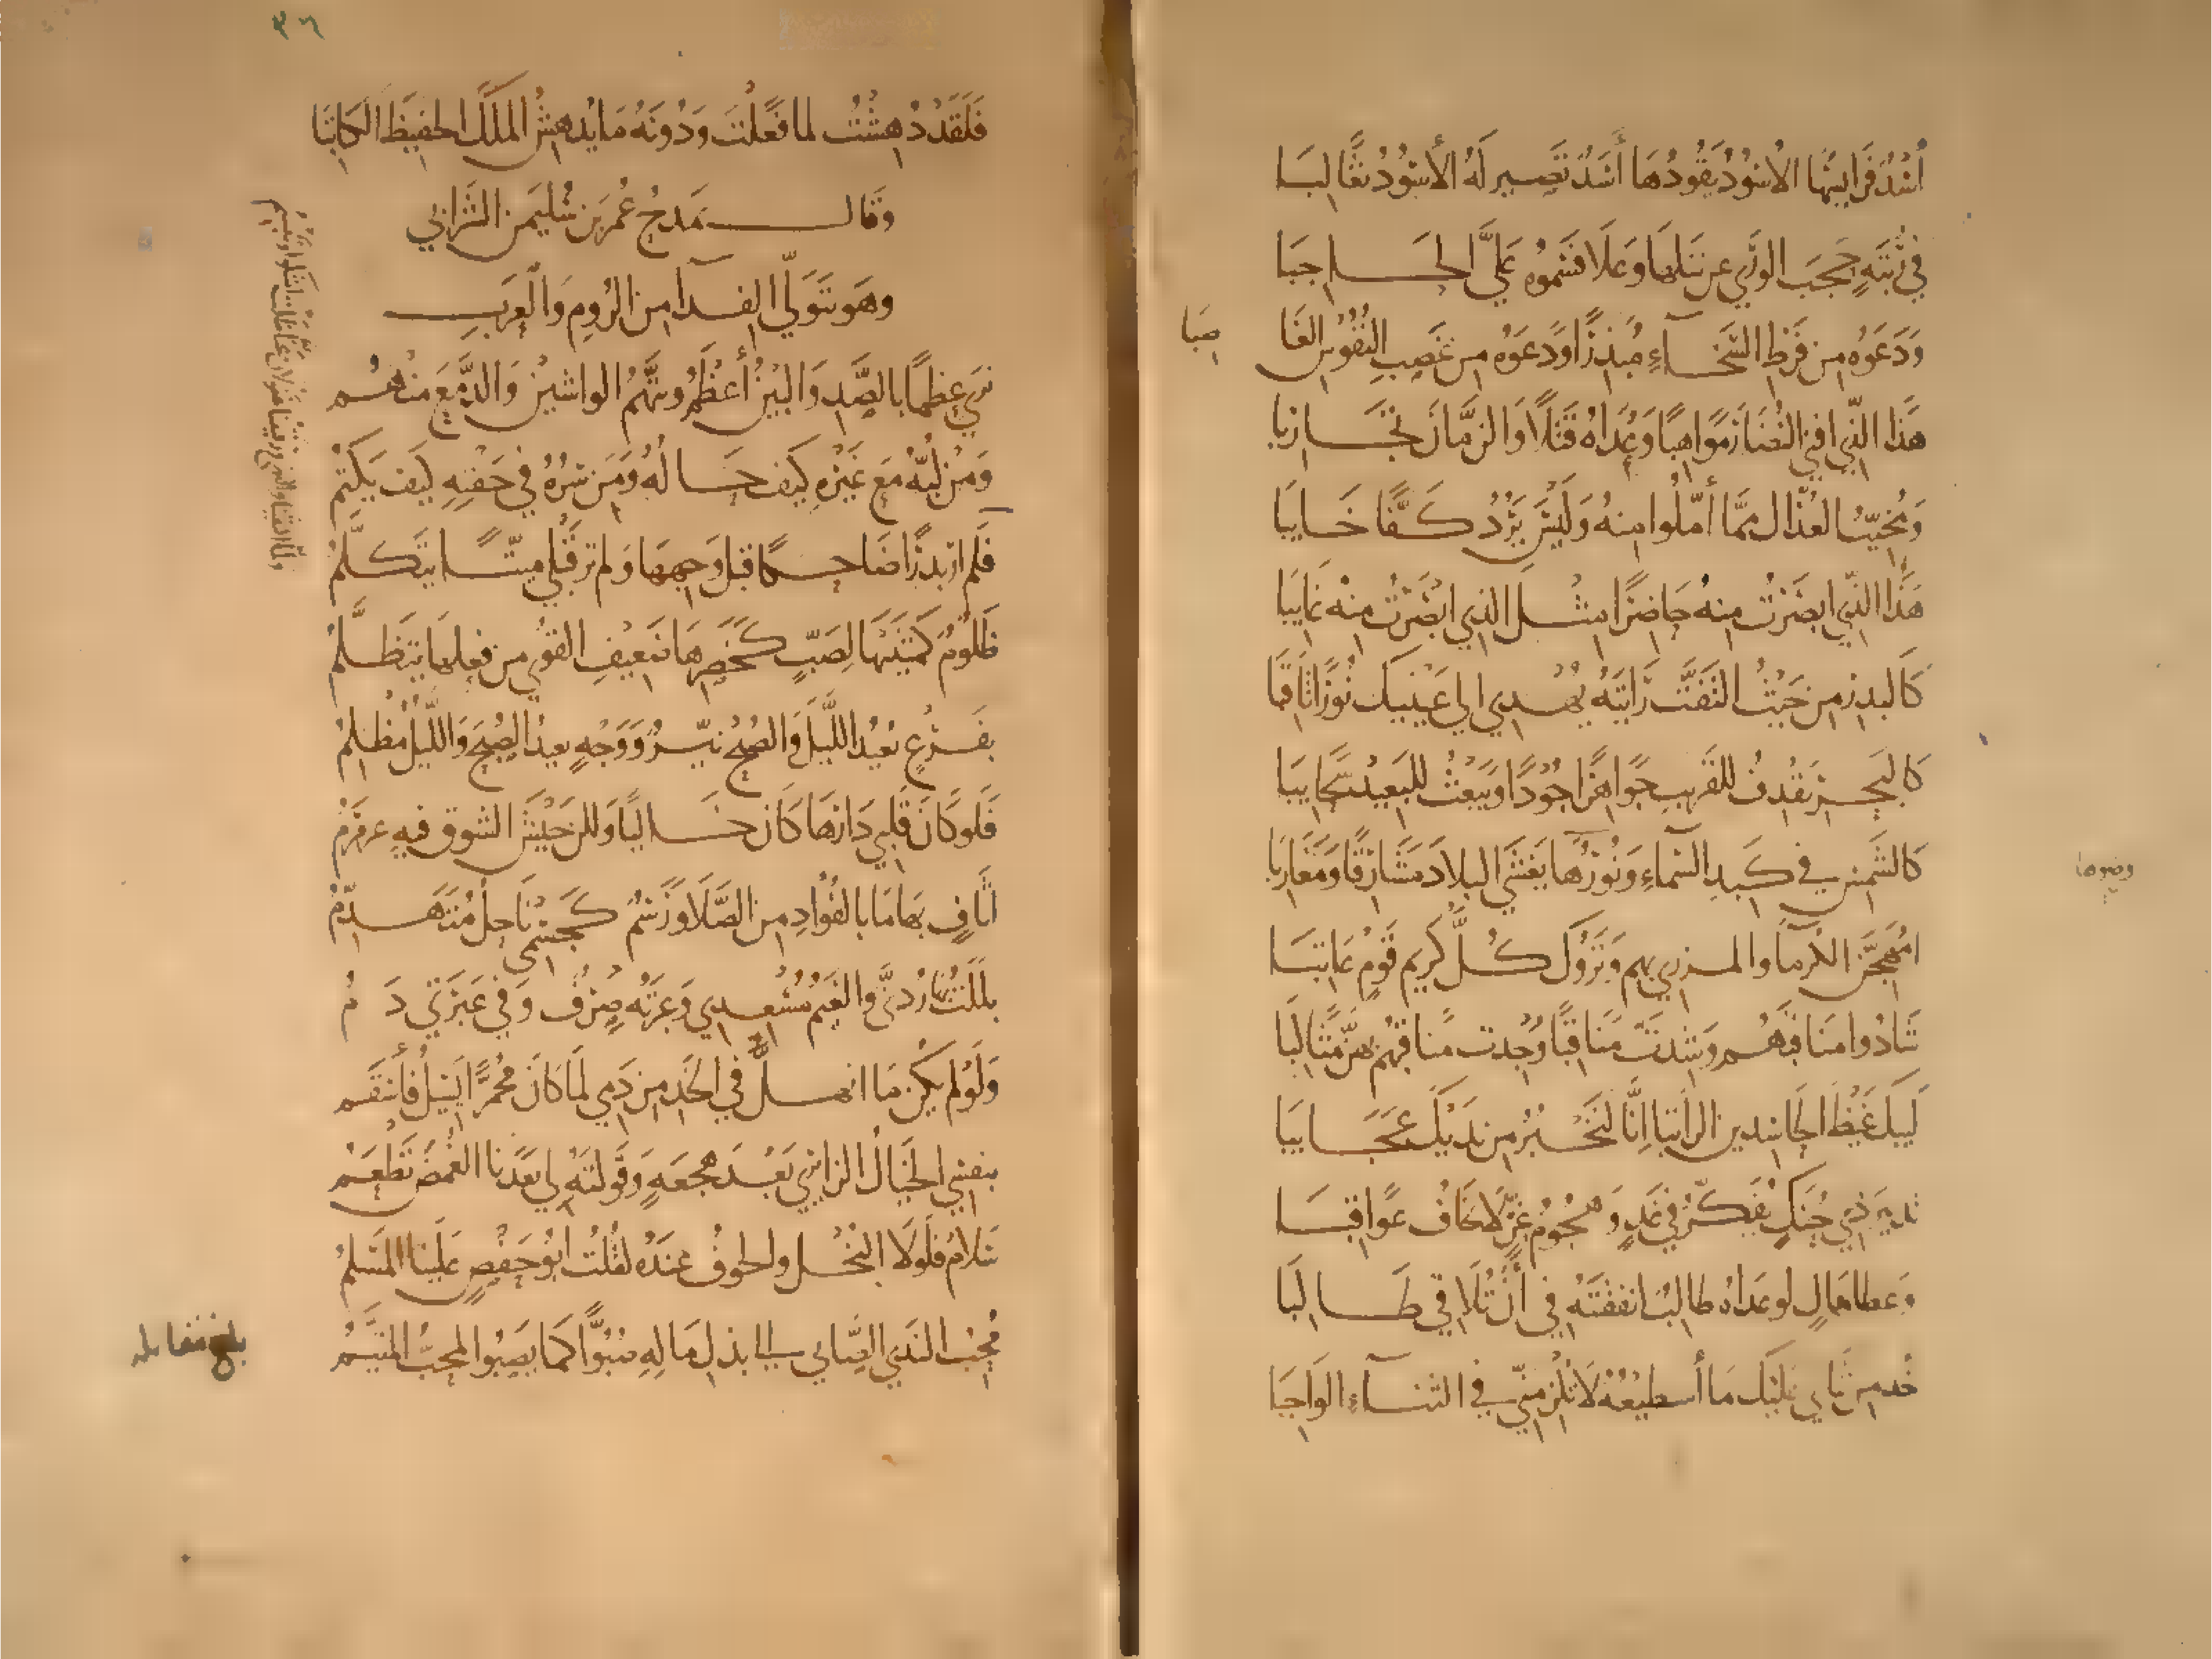 أُسْدٌ فَرَايِسُهَا الأُسُودُ يَقُودُهَا أَسَدٌ تَصِير لَهُ الأُسُودُ ثَعَالِبَا
فِي رُتبَةٍ حَجَبَ الوَرَي عن نَيلهَا وَعَلَا فَسَمَّوهُ عَلِيَّ الحَـاجِبَا
وَدَعَوْهُ مِن فَرْطِ السَّخَـآءِ مُبَذِرًا وَدَعَوْهُ مِن غَصبِ النُّفُوسِ الغَا
صِبَا
هَذَا الذِّي افنَي النُّضَارَ مَوَاهِبًا وَعُدَاهُ قَتْلًا وَالزَّمَانَ تَجَـارِبَا
وَمُخَيِّبُ العُذَّال مِمَّا أَمَّلُوا مِنهُ وَلَيْسَ يَرُدُ كَـفًّا خَـايِبَا
هَذَا الذِّي ابصَرْتُ مِنهُ حَاضِرًا مِثْـلَ الذِي ابْصَرْتُ مِنْه غَايِبَا
كَالبدرِ مِن حَيْثُ التَفَتَّ رَايتَهُ يُهْـدِي الي عَيْنَيكَ نُورًا ثَاقِبَا
كالبَحْـرِ يَقْذِفُ للقَرِيبِ جَوَاهِرًا جُوْدًا وَيَبْعَثُ للبَعِيدِ سَحَايِبَا
كالشَّمسِ في كَـبِدِ السَّمَآءِ وَنُورُهَا يَغْشَي البِلَادَ مَشَارِقًا وَمَغَارِبَا
وضووها
امُهَجِّنَ الكُرَمَآ والمـزرِي بهم وَتَرُوكَ كُـلِّ كَرِيمِ قَومٍ عَاتِبَـا
شَادُوا مَنَاقِبَهُـم وَشِدتَ مَنَاقِبًا وُجِدت مَنَاقِبُهُم بِهِنَّ مَثَالِبَا
لَبَيكَ غَيْظَ الحَاسِدين الرَاتِبَا إِنَّا لَنَخْـبُرُ مِن يَدَيْكَ عَجَـايِبَا
تَدبِيرَ ذِي حُنَكٍ يُفَكِّـرُ فِي غَدٍ وَهُجُومُ غِرٍّ لَا يَخَافُ عَوَاقِبَـا
وَعَطاء مَالٍ لو عَدَاهُ طالِبٌ انفَقتَهُ فِي أَن تُلَاقِي طَـالِبَا
خُذ مِن ثَنَاي عَلَيكَ مَا أسطيعُهُ لَا تُلْزِمَنِّي في الثنـآءِ الوَاجِبَا
٣٦
فَلَقَدْ دُهِشْتُ لما فَعَلْتَ وَدُونَهُ مَا يُدهِشُ المَلَكَ الحَفِيظَ الكَاتِبَا
وَقَالَ يَمدَحُ عُمَرَ بن سُليمَن الشَّرَابي
وهَو يَتَوَلَّي الفِـدَآ مِن الرُومِ وَالعَرَبِ
نَرَي عِظمًا بالصَّدِ وَالبَيْنُ أَعْظَمُ وَنَتَّهمُ الواشِينَ وَالدَّمْعُ مِنْهُـم
وَمَنْ لُبُّهُ مَعَ غَيْرِهِ كَيفَ حَـالهُ وَمَن سِرُهُ فِي جَفْنِهِ كَيفَ يَكتُمُ
فَلَم ار بَدْرًا ضَاحِـكًا قَبلَ وَجهِهَا وَلم تَرَ قَبْلِي مَيِّتًـا يَتَكَـلَّمُ
ظَلُومٌ كَمَتْنَيْهَا لِصَبٍّ كَـخَصرِهَا ضَعِيْفِ القُوي مِن فِعلِهَا يَتَظَـلَّمُ
بفَـرْعٍ يُعِيْدُ اللَّيْلَ وَالصُبْحُ نيِّـرٌ وَوَجْهٍ يعيدُ الصُبْحَ وَاللَّيْلُ مُظْـلِمُ
فَلَو كَانَ قَلْبِي دَارَهَا كَانَ خَـالِيًا وَلَكن جَيْشَ الشَوقِ فيهِ عرمرَمُ
اثَافٍ بِهَا مَا بالفُؤَادِ مِن الصَّلَا وَرَسْمٌ كَـجِسْمِي نَاحِلٌ مُتَهَـدِّمُ
بَلَلْتُ بها رُدْنَيَّ والغَيْمُ مُسْعِـدِي وَعَبرَتُه صِرْفٌ وَفِي عَبرَتِي دَ مُ
وَلَوْ لم يكُن مَا انهـلَّ في الخَدِ مِن دَمِي لَمَا كَانَ مُحْمَرًّا يَسيلُ فَأَسْقَـم
بنفسِي الخَيَالُ الزايرِي بَعْـدَ هَجعَةٍ وَقَولتَهُ لِي بَعْدَنا الغُمضَ تَطْعَـم
سَلامٌ فَلَولَا البُخْـل والخوفُ عِندَهُ لقُلْتُ ابُو حَفْصٍ عَلَينَا المُسَلِّمُ
مُحِبُّ النَدَي الصَّابي إلي بذلِ مَالِهِ صُبُوًّا كَمَا يَصبُوا المحِبُّ المُتَيَّمُ
بلغ مقابله